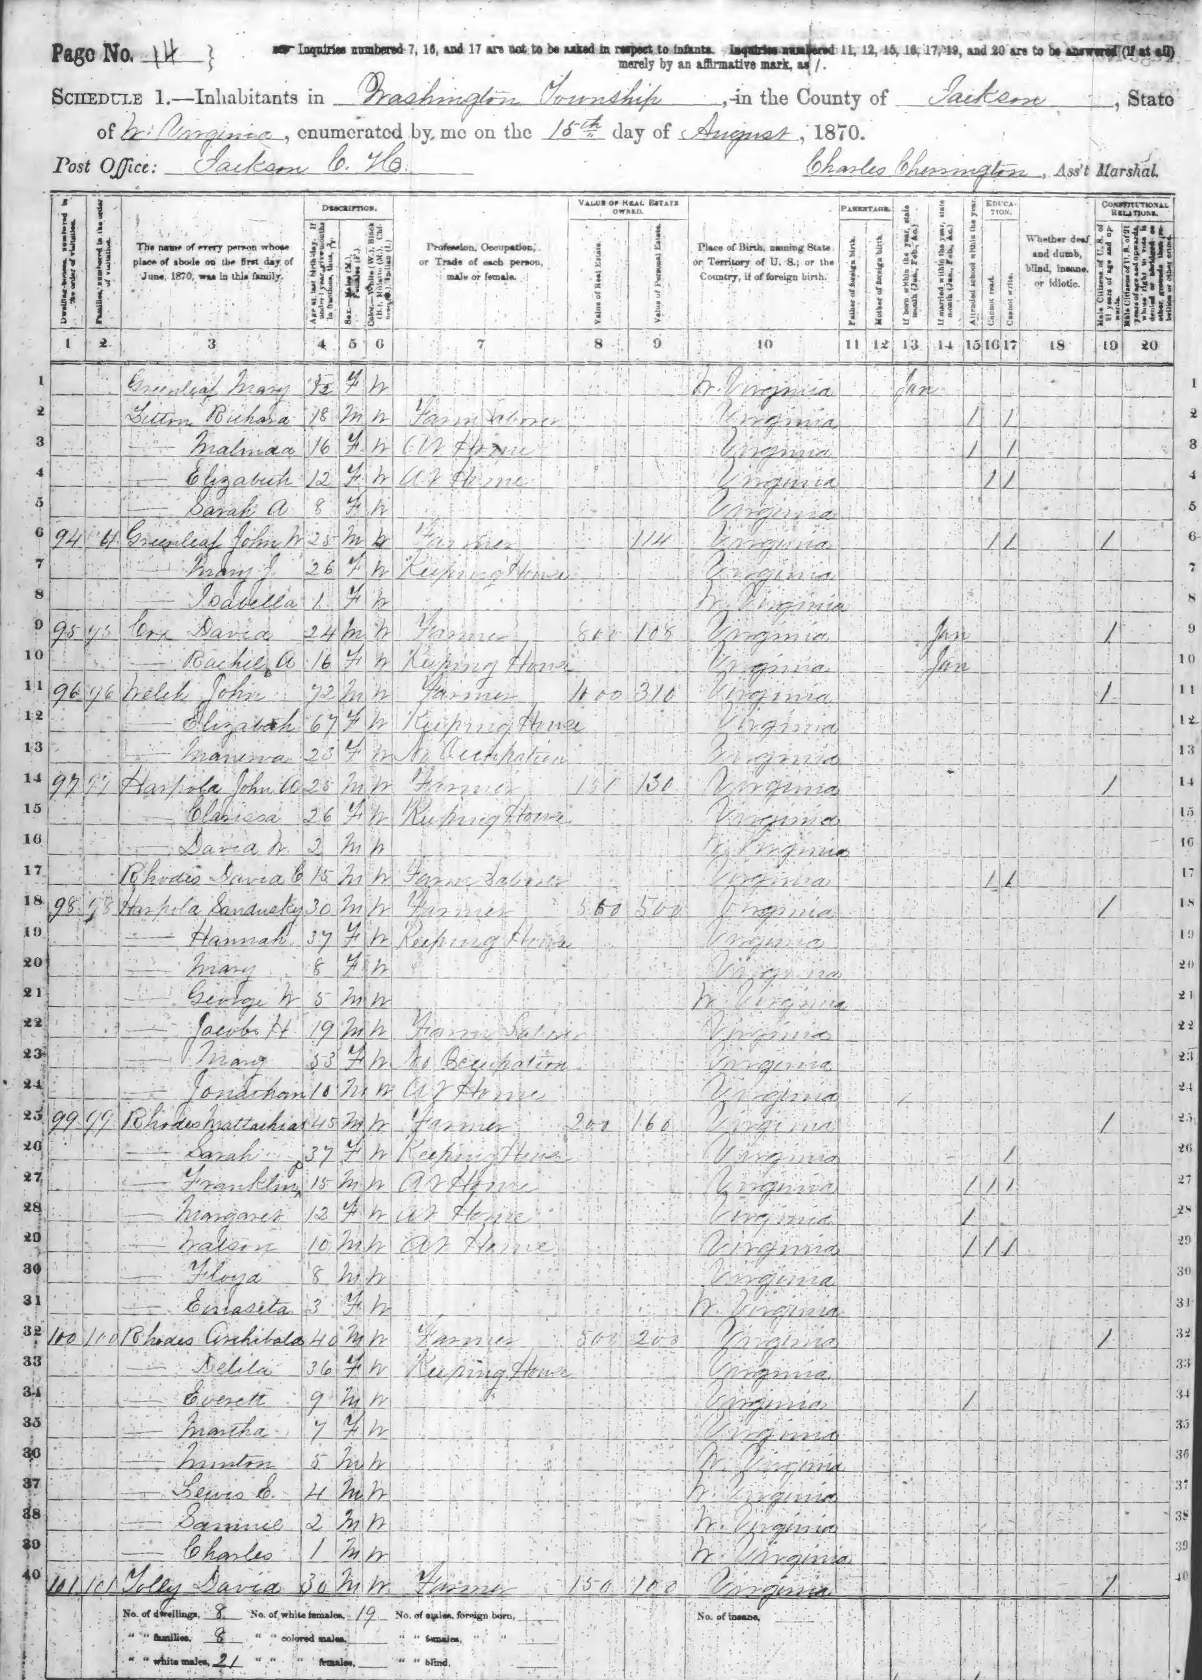 Page No. 14
Inquiries numbered 7, 16, and 17 are not to be asked in respect to infants. Inquiries numbered 11, 12, 15, 16, 17, 19, and 20 are to be answered (if at all)
merely by an affirmative mark, as /.
SCHEDULE 1.—Inhabitants in Washington Township, in the County of Jackson, State
of W. Virginia, enumerated by me on the 15th day of August, 1870.
Post Office: Jackson C. H. Charles Cherrington, Ass't Marshal.
DESCRIPTION. VALUE OF REAL ESTATE OWNED. PARENTAGE. EDUCATION. CONSTITUTIONAL RELATIONS.
Dwelling-houses, numbered in the order of visitation.
Families, numbered in the order of visitation.
The name of every person whose place of abode on the first day of June, 1870, was in this family.
Sex.—Males (M.), Females (F.).
Profession, Occupation, or Trade of each person, male or female.
Value of Real Estate.
Value of Personal Estate.
Place of Birth, naming State or Territory of U. S.; or the Country, if of foreign birth.
Father of foreign birth.
Mother of foreign birth.
If born within the year, state month (Jan., Feb., &c.)
If married within the year, state month (Jan., Feb., &c.)
Attended school within the year.
Cannot read.
Cannot write.
Whether deaf and dumb, blind, insane, or idiotic.
1 2 3 4 5 6 7 8 9 10 11 12 13 14 15 16 17 18 19 20
1 Greenleaf Mary F W W. Virginia Jan 1
2 Richard 18 M W Farm Laborer Virginia / / 2
3 — Malinda 16 F W At Home Virginia / / 3
4 — Elizabeth 12 F W At Home Virginia / / 4
5 — Sarah A 8 F W Virginia 5
6 94 Greenleaf John W 25 M W Farmer 114 Virginia / / / 6
7 — Mary J. 26 F W Keeping House Virginia 7
8 — Isabella 1 F W W. Virginia 8
9 95 95 Cox David 24 M W Farmer 800 108 Virginia Jan / 9
10 — Rachel A 16 F W Keeping House Virginia Jan 10
11 96 96 Welch John 72 M W Farmer 1000 310 Virginia / 11
12 — Elizabeth 67 F W Keeping House Virginia 12
13 — Manerva 23 F W No Occupation Virginia 13
14 97 97 Harpold John A 25 M W Farmer 130 Virginia / 14
15 — Clarissa 26 F W Keeping House Virginia 15
16 — David W. 2 M W W. Virginia 16
17 Rhodes David E 15 M W Farm Laborer Virginia / / 17
18 98 98 Harpold Sandusky 30 M W Farmer 500 500 Virginia / 18
19 — Hannah 37 F W Keeping House Virginia 19
20 — Mary 8 F W Virginia 20
21 — George W 5 M W W. Virginia 21
22 — Jacob H 19 M W Farm Laborer Virginia 22
23 — Mary 53 F W No Occupation Virginia 23
24 — Jonathan 10 M W At Home Virginia 24
25 99 99 Rhodes Mattathias 45 M W Farmer 200 160 Virginia / 25
26 — Sarah 37 F W Keeping House Virginia / 26
27 — Franklin 15 M W At Home Virginia / / / 27
28 — Margaret 12 F W At Home Virginia / 28
29 — Watson 10 M W At Home Virginia / / / 29
30 — Floyd 8 M W Virginia 30
31 — 3 F W W. Virginia 31
32 100 100 Rhodes Archibald 40 M W Farmer 500 200 Virginia / 32
33 — Delila 36 F W Keeping House Virginia 33
34 — Everett 9 M W Virginia / 34
35 — Martha 7 F W Virginia 35
36 — Minton 5 M W W. Virginia 36
37 — Lewis E. 4 M W W. Virginia 37
38 — Samuel 2 M W W. Virginia 38
39 — Charles 1 M W W. Virginia 39
40 101 101 Tolly David 30 M W Farmer 150 100 Virginia / 40
No. of dwellings, 8 No. of white females, 19 No. of males, foreign born, No. of insane,
" " families, 8 " " colored males, " " females, " "
" " white males, 21 " " " females, " " blind,